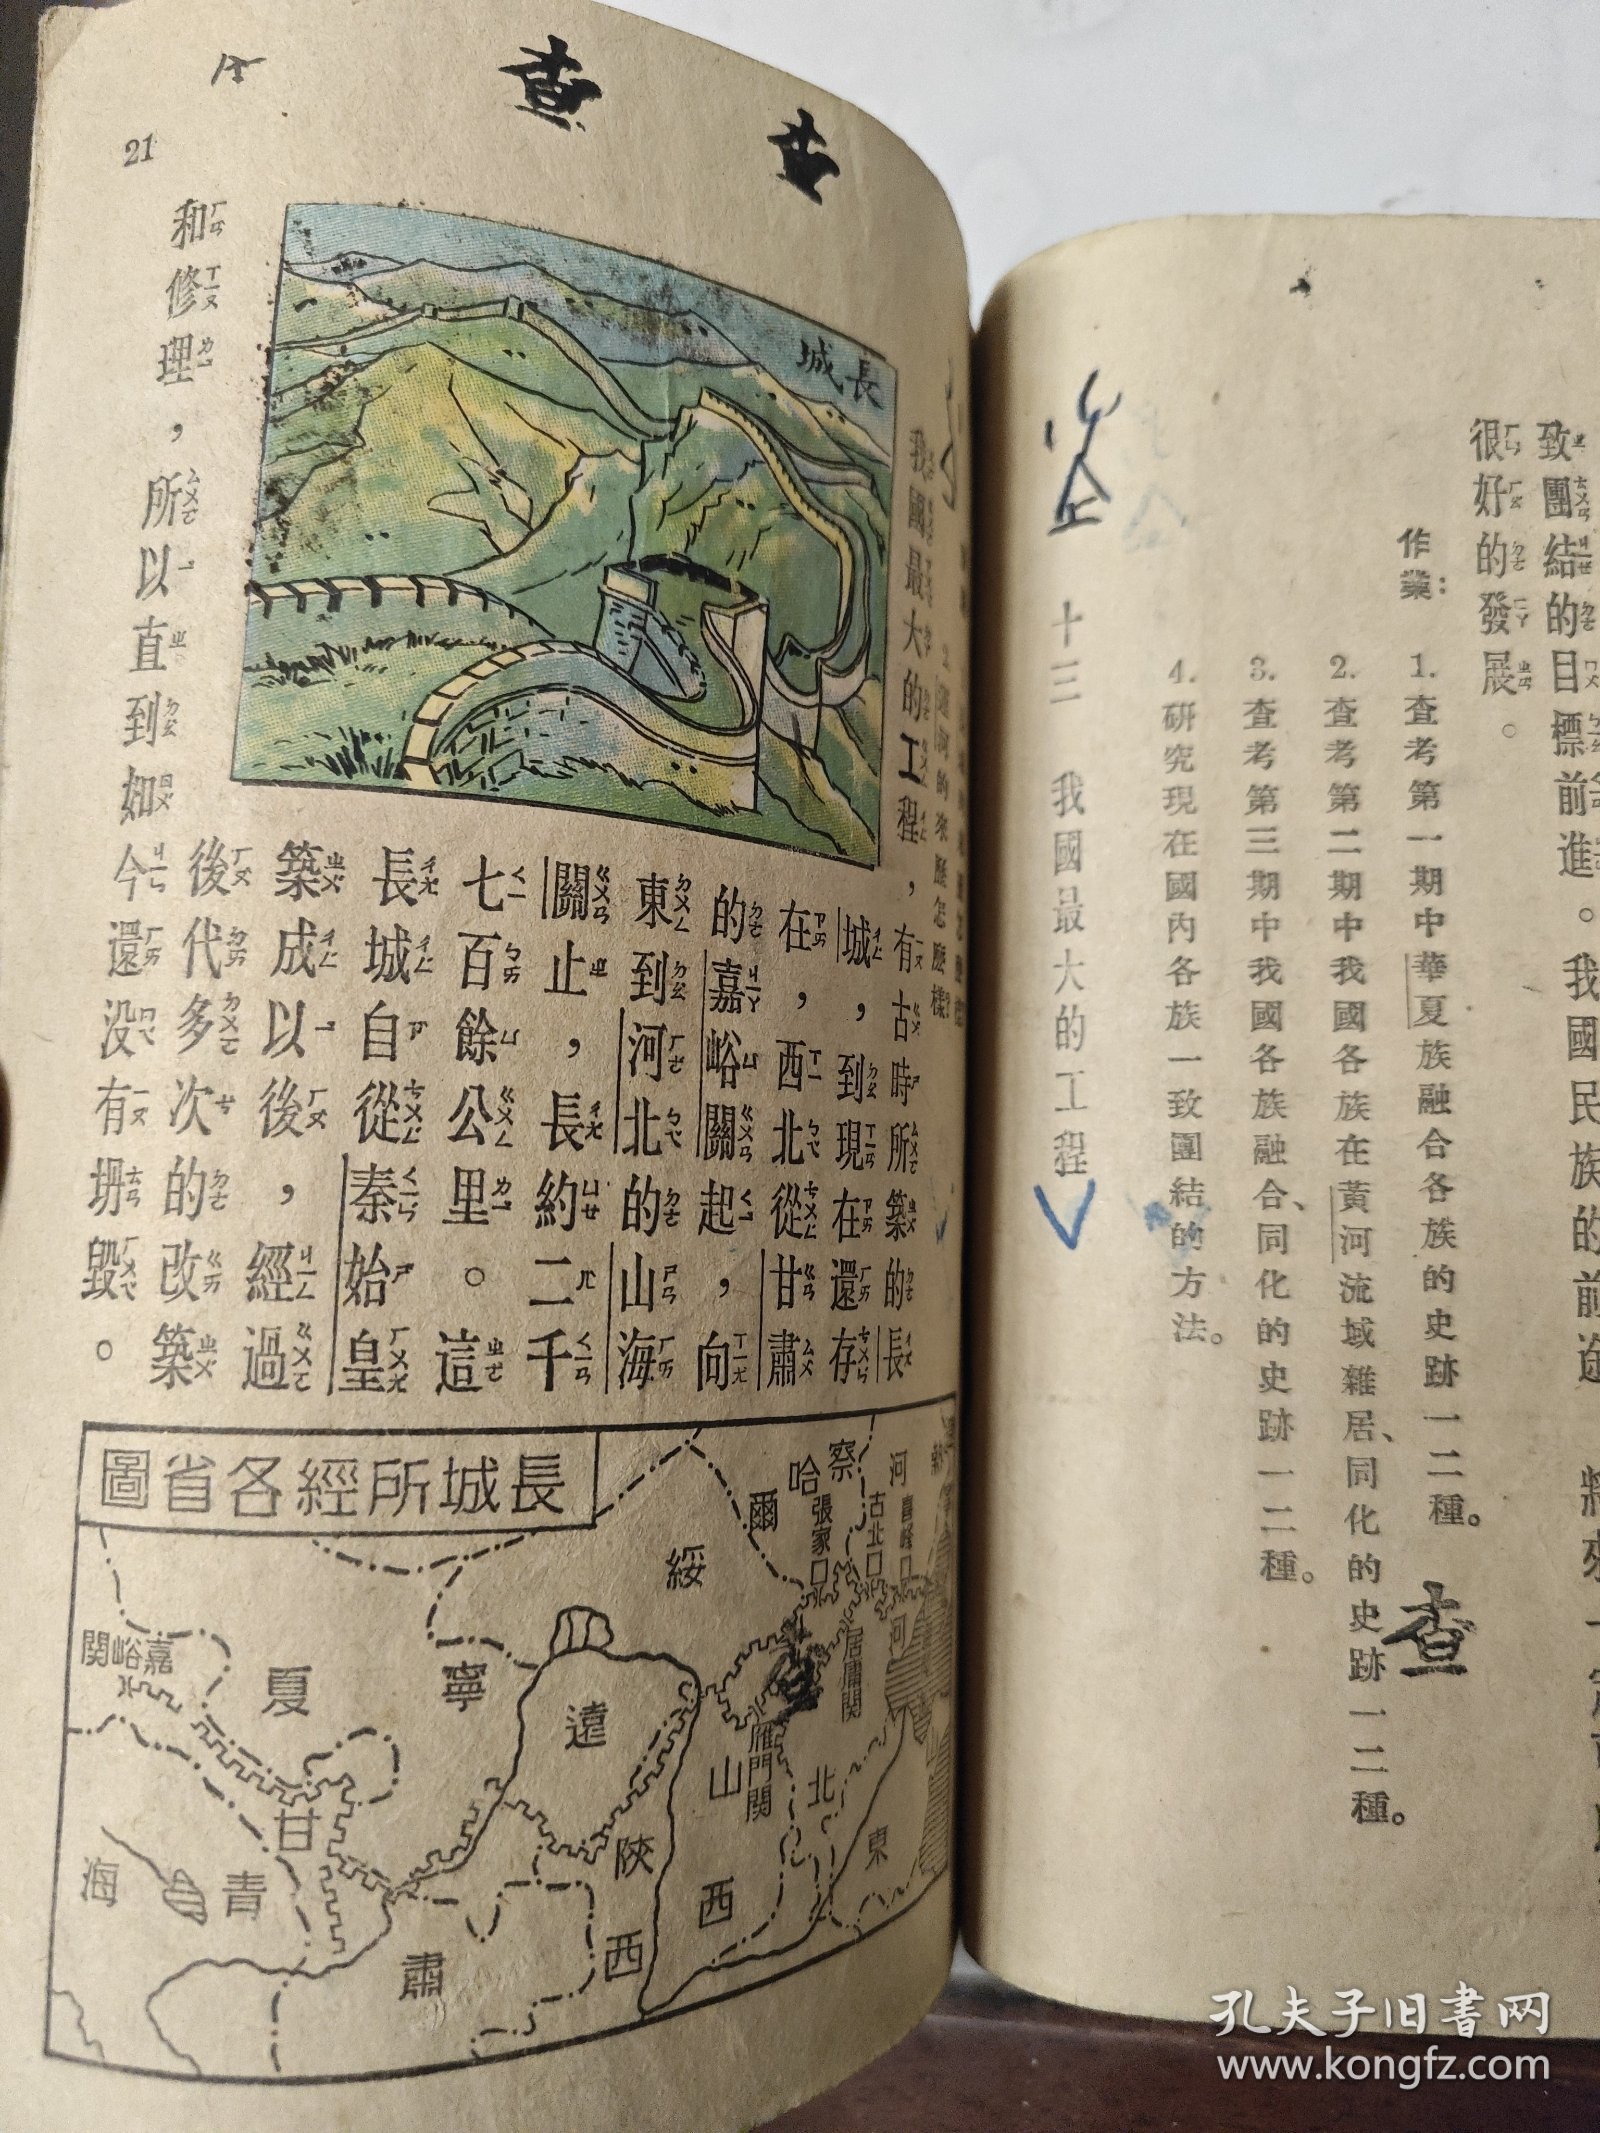 致團結的目標前進。我國民族的前途
很好的發展。
作業：
1. 查考第一期中華夏族融合各族的史跡一二種。
2. 查考第二期中我國各族在黃河流域雜居、同化的史跡一二種。
3. 查考第三期中我國各族融合、同化的史跡一二種。
4. 研究現在國內各族一致團結的方法。
十三 我國最大的工程
查
查
21
長城
我國最大的工程，有古時所築的長
城，到現在還存
在，西北從甘肅
的嘉峪關起，向
東到河北的山海
關止，長約二千
七百餘公里。這
長城自從秦始皇
築成以後，經過
後代多次的改築
和修理，所以直到如今還没有坍毀。
長城所經各省圖
察
哈
爾
綏
遠
寧
夏
甘
肅
青
海
陝
西
山
西
河
北
東
河
張家口
古北口
喜峰口
居庸關
雁門關
嘉峪關
孔夫子旧書网
www.kongfz.com